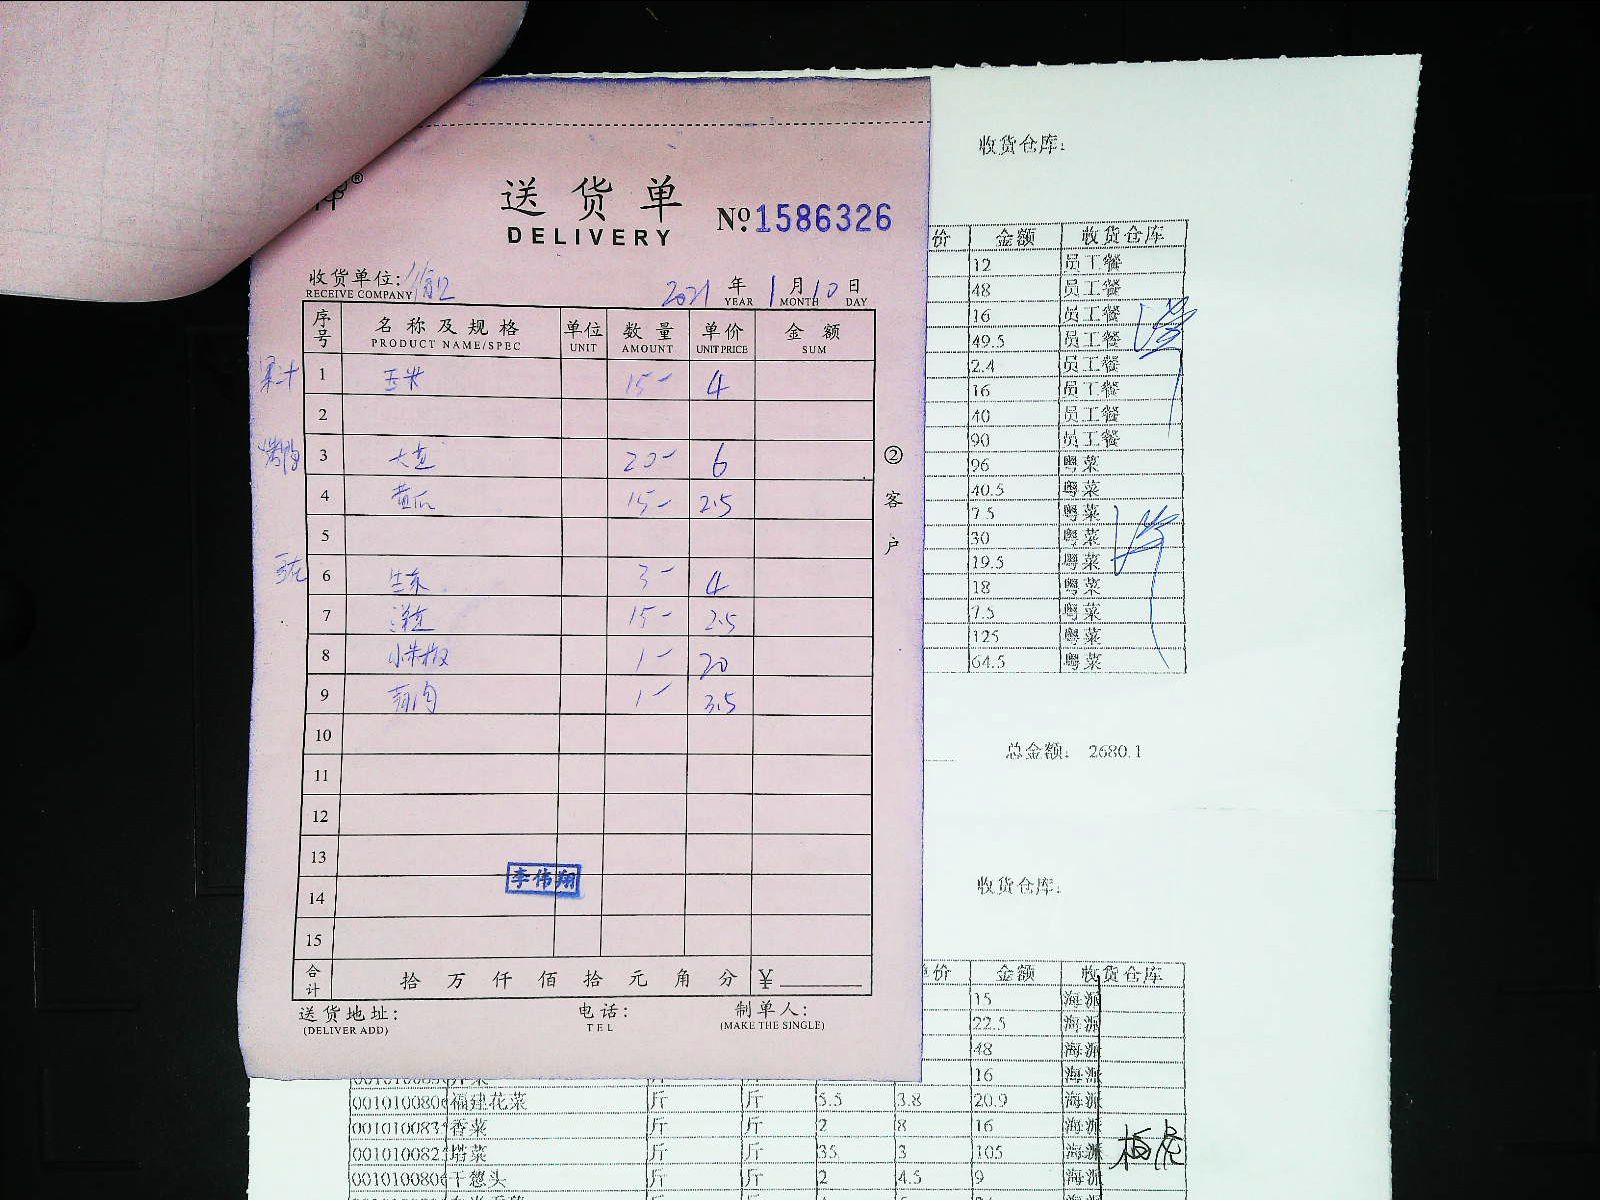 送货单
DELIVERY
№ 1586326
收货单位:
RECEIVE COMPANY
2021 年 1 月 10 日
YEAR MONTH DAY
序号 名称及规格 单位 数量 单价 金额
PRODUCT NAME/SPEC UNIT AMOUNT UNIT PRICE SUM
果汁 1 玉米 15- 4
2
烤鸭 3 大 20- 6
4 黄瓜 15- 2.5
5
6 生 3- 4
7 洋 15- 2.5
8 小米椒 1- 20
9 1- 3.5
10
11
12
13
14
15
李伟翔
② 客户
合计 拾 万 仟 佰 拾 元 角 分 ¥
送货地址: 电话: 制单人:
(DELIVER ADD) TEL (MAKE THE SINGLE)
收货仓库:
价 金额 收货仓库
12 员工餐
48 员工餐
16 员工餐
49.5 员工餐
2.4 员工餐
16 员工餐
40 员工餐
90 员工餐
96 粤菜
40.5 粤菜
7.5 粤菜
30 粤菜
19.5 粤菜
18 粤菜
7.5 粤菜
125 粤菜
64.5 粤菜
总金额: 2680.1
收货仓库:
价 金额 收货仓库
15 海派
22.5 海派
48 海派
16 海派
福建花菜 斤 斤 5.5 3.8 20.9 海派
香菜 斤 斤 2 8 16 海派
塔菜 斤 斤 35 3 105 海派
干葱头 斤 斤 2 4.5 9 海派